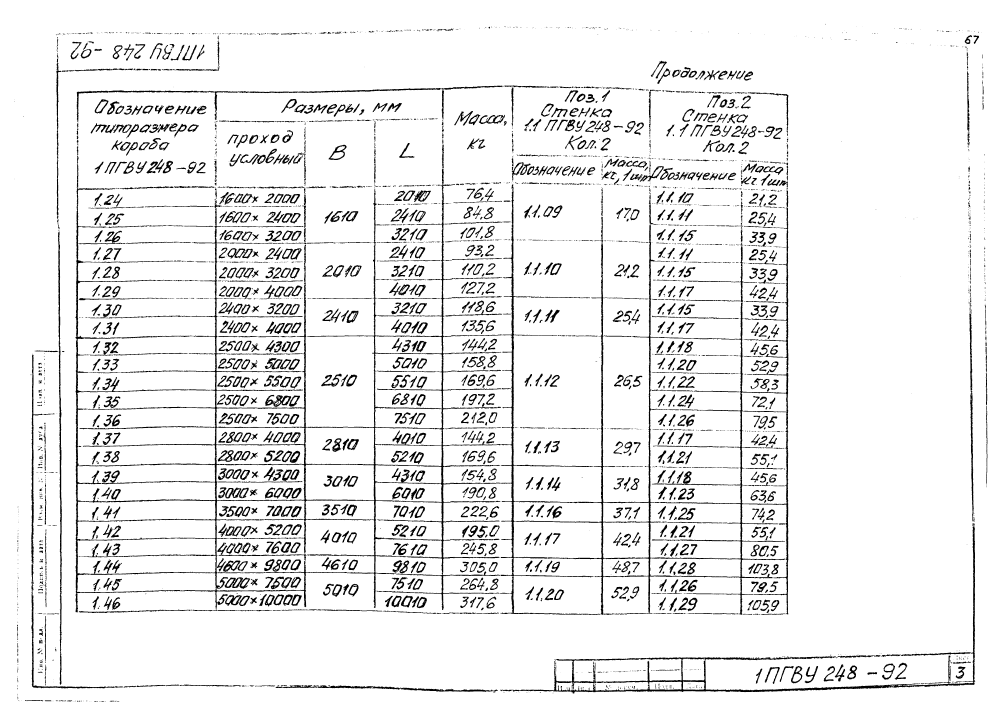 67
1ПГВУ 248 -92
Продолжение
Обозначение типоразмера короба 1ПГВУ 248 -92 | Размеры, мм | Масса, кг | Поз.1 Стенка 1.1 ПГВУ 248-92 Кол.2 | Поз.2 Стенка 1.1 ПГВУ 248-92 Кол.2
проход условный | В | L | Обозначение | Масса, кг, 1 шт | Обозначение | Масса кг 1 шт
1.24 | 1600 × 2000 | 1610 | 2010 | 76,4 | 1.1.09 | 17,0 | 1.1.10 | 21,2
1.25 | 1600 × 2400 | 2410 | 84,8 | 1.1.11 | 25,4
1.26 | 1600 × 3200 | 3210 | 101,8 | 1.1.15 | 33,9
1.27 | 2000 × 2400 | 2010 | 2410 | 93,2 | 1.1.10 | 21,2 | 1.1.11 | 25,4
1.28 | 2000 × 3200 | 3210 | 110,2 | 1.1.15 | 33,9
1.29 | 2000 × 4000 | 4010 | 127,2 | 1.1.17 | 42,4
1.30 | 2400 × 3200 | 2410 | 3210 | 118,6 | 1.1.11 | 25,4 | 1.1.15 | 33,9
1.31 | 2400 × 4000 | 4010 | 135,6 | 1.1.17 | 42,4
1.32 | 2500 × 4300 | 2510 | 4310 | 144,2 | 1.1.12 | 26,5 | 1.1.18 | 45,6
1.33 | 2500 × 5000 | 5010 | 158,8 | 1.1.20 | 52,9
1.34 | 2500 × 5500 | 5510 | 169,6 | 1.1.22 | 58,3
1.35 | 2500 × 6800 | 6810 | 197,2 | 1.1.24 | 72,1
1.36 | 2500 × 7500 | 7510 | 212,0 | 1.1.26 | 79,5
1.37 | 2800 × 4000 | 2810 | 4010 | 144,2 | 1.1.13 | 29,7 | 1.1.17 | 42,4
1.38 | 2800 × 5200 | 5210 | 169,6 | 1.1.21 | 55,1
1.39 | 3000 × 4300 | 3010 | 4310 | 154,8 | 1.1.14 | 31,8 | 1.1.18 | 45,6
1.40 | 3000 × 6000 | 6010 | 190,8 | 1.1.23 | 63,6
1.41 | 3500 × 7000 | 3510 | 7010 | 222,6 | 1.1.16 | 37,1 | 1.1.25 | 74,2
1.42 | 4000 × 5200 | 4010 | 5210 | 195,0 | 1.1.17 | 42,4 | 1.1.21 | 55,1
1.43 | 4000 × 7600 | 7610 | 245,8 | 1.1.27 | 80,5
1.44 | 4600 × 9800 | 4610 | 9810 | 305,0 | 1.1.19 | 48,7 | 1.1.28 | 103,8
1.45 | 5000 × 7500 | 5010 | 7510 | 264,8 | 1.1.20 | 52,9 | 1.1.26 | 79,5
1.46 | 5000×10000 | 10010 | 317,6 | 1.1.29 | 105,9
1ПГВУ 248 -92
3